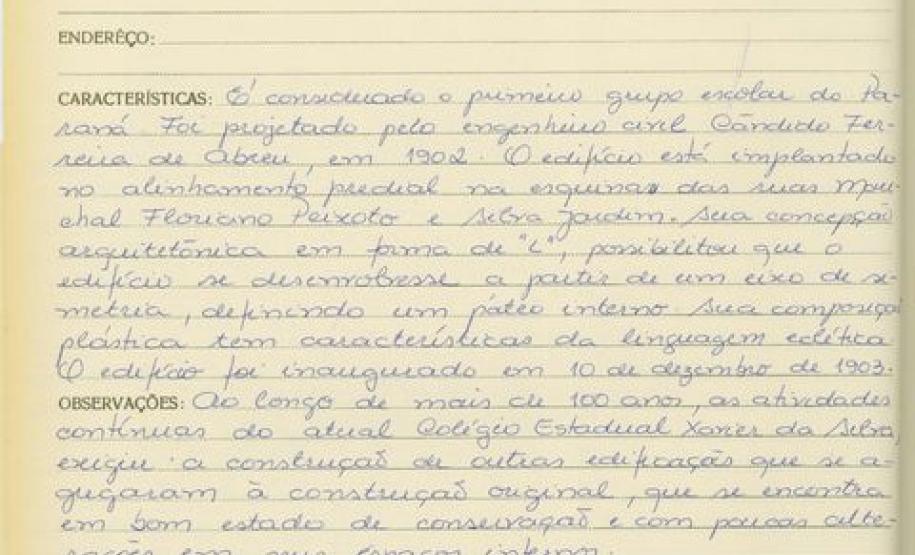 ENDERÊÇO:
CARACTERÍSTICAS: É considerado o primeiro grupo escolar do Pa-
raná. Foi projetado pelo engenheiro civil Cândido Fer-
reira de Abreu, em 1902. O edifício está implantado
no alinhamento predial na esquina das ruas Mare-
chal Floriano Peixoto e Silva Jardim. Sua concepção
arquitetônica em forma de "L", possibilitou que o
edifício se desenvolvesse a partir de um eixo de si-
metria, definindo um páteo interno. Sua composiçã
plástica tem características da linguagem eclética
O edifício foi inaugurado em 10 de dezembro de 1903.
OBSERVAÇÕES: Ao longo de mais de 100 anos, as atividades
contínuas do atual Colégio Estadual Xavier da Silva,
exigiu a construção de outras edificações que se a-
gregaram à construção original, que se encontra
em bom estado de conservação e com poucas alte-
rações em seus espaços internos.